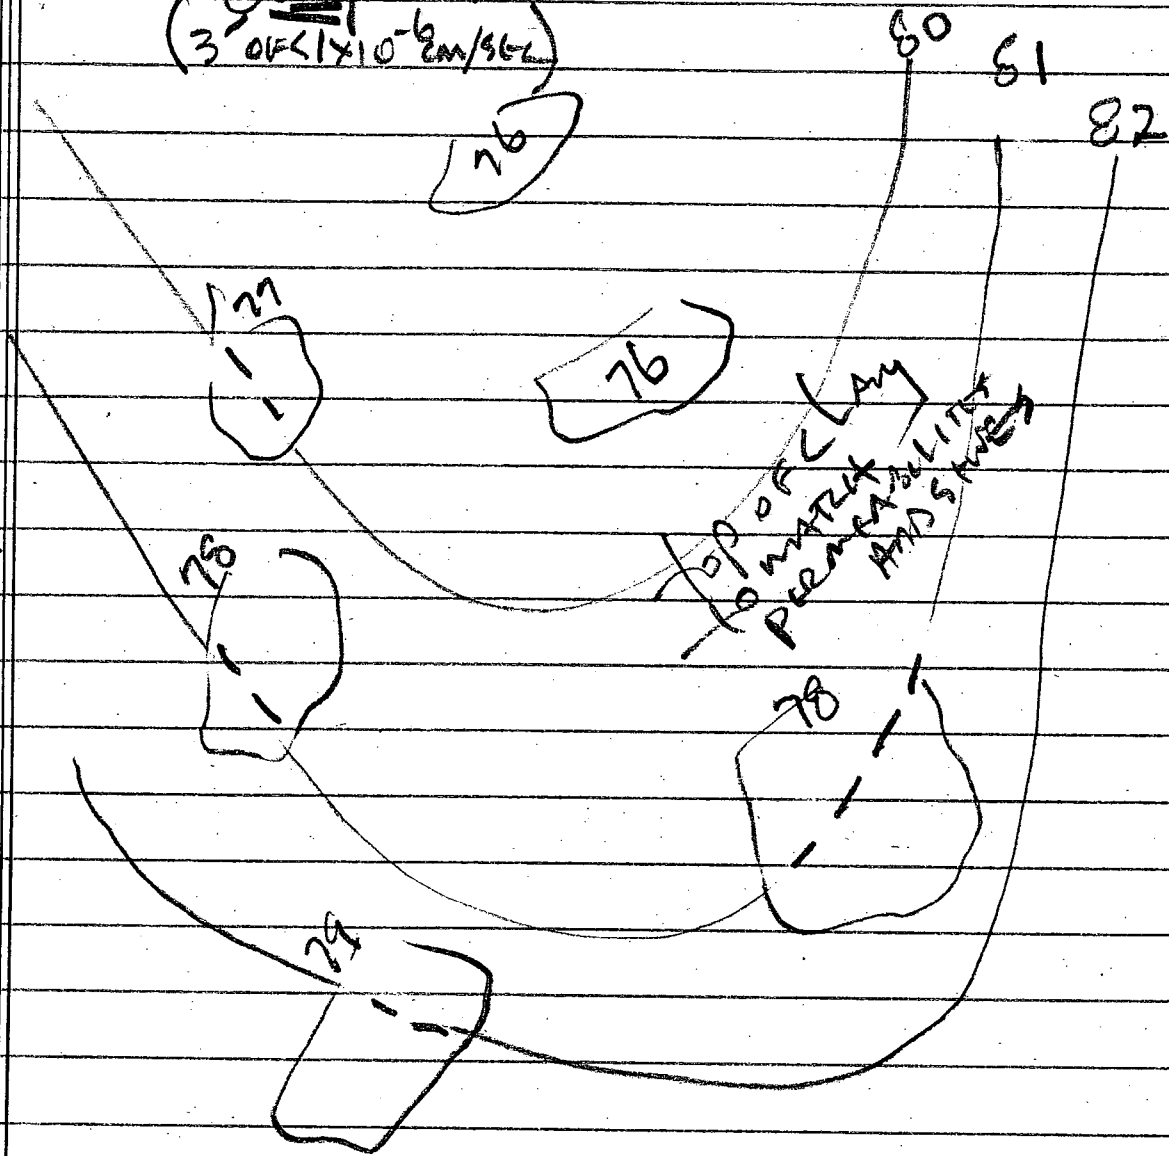 (3 OF <1×10⁻⁶ cm/SEC)
80
81
82
76
77
76
OP OF (ANY
MATRIX
PERMEABILITY
AND
78
78
79